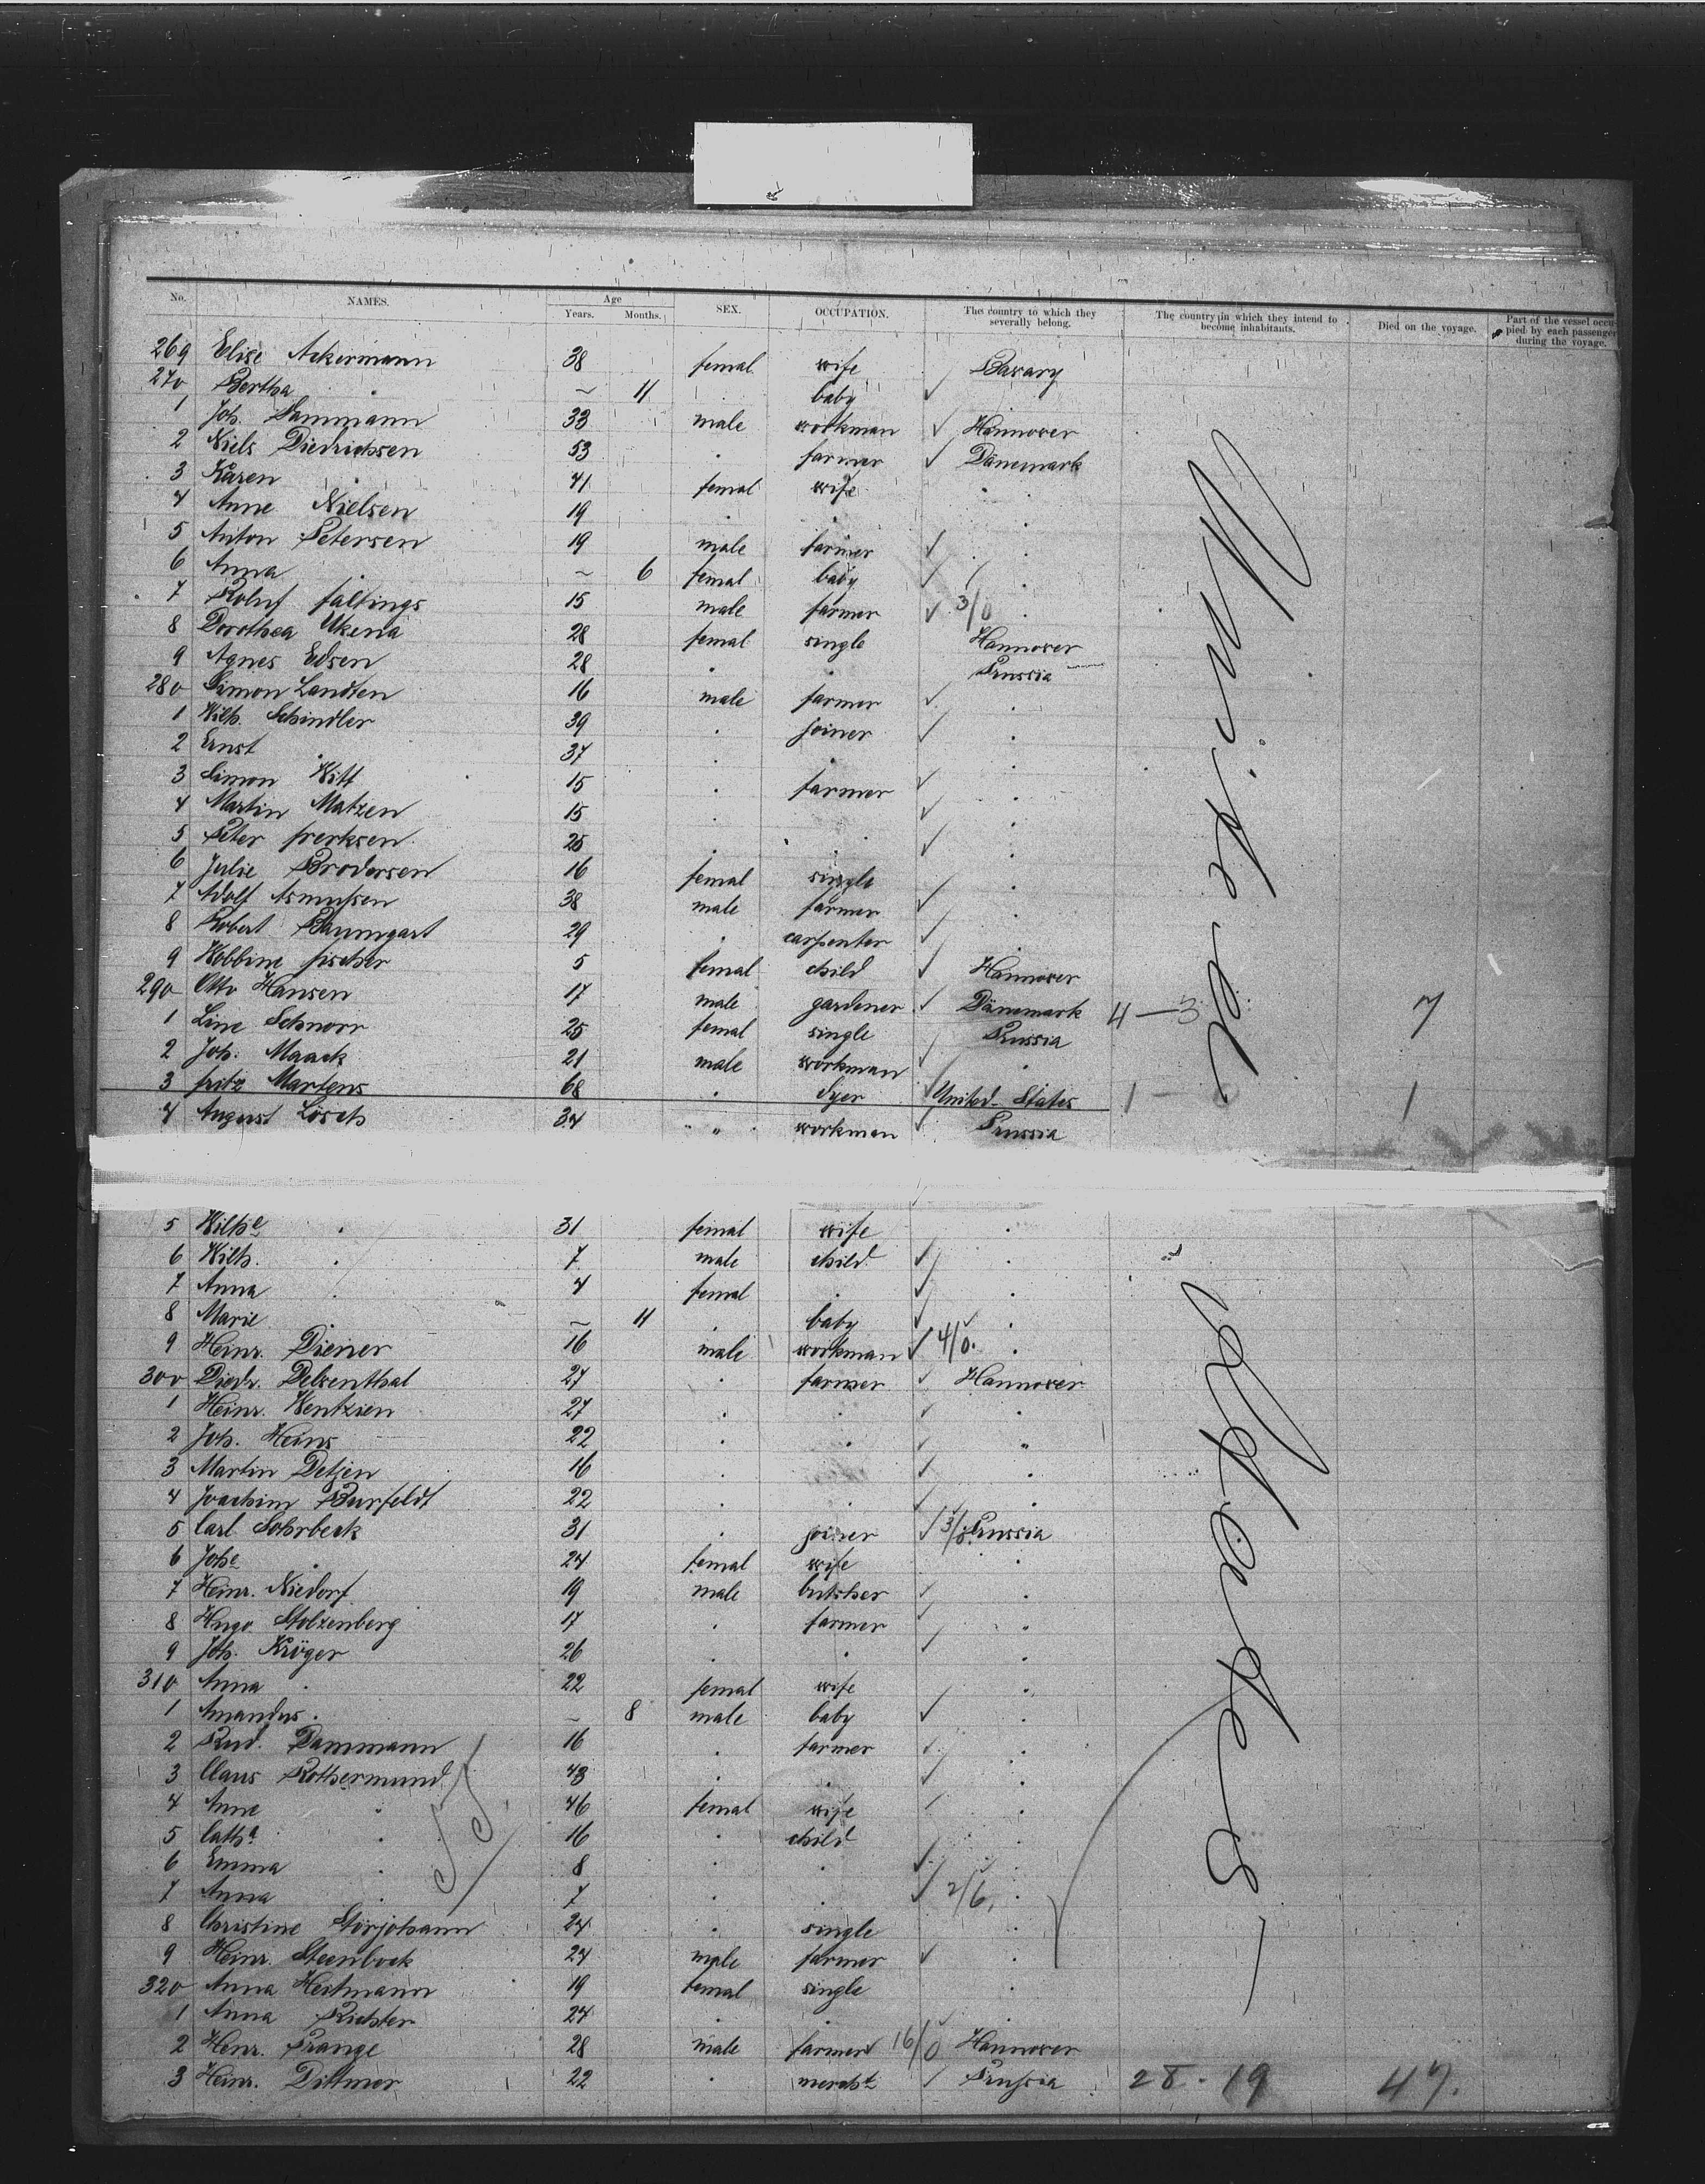 No. NAMES. Age Years. Months. SEX. OCCUPATION. The country to which they severally belong. The country in which they intend to become inhabitants. Died on the voyage. Part of the vessel occupied by each passenger during the voyage.
269 Elise Ackermann 38 femal wife Bavary
270 Bertha " — 11 baby ✓
1 Joh. Dammann 33 male workman ✓ Hannover
2 Niels Diedrichsen 53 . farmer ✓ Dänemark
3 Karen . 41 femal wife .
4 Anne Nielsen 19 . . .
5 Anton Petersen 19 male farmer ✓ .
6 Anna . — 6 femal baby ✓ .
7 Roluf Faltings 15 male farmer ✓ 3/0 .
8 Dorothea Ukena 28 femal single Hannover
9 Agnes Edsen 28 . . Prussia
280 Simon Landten 16 male farmer ✓ .
1 Wilh. Schindler 39 . joiner ✓ .
2 Ernst . 37 . . .
3 Simon Witt 15 . farmer ✓ .
4 Martin Matzen 15 . . ✓ .
5 Peter Frerksen 25 . . ✓ .
6 Julie Brodersen 16 femal single .
7 Adolf Asmussen 38 male farmer ✓ .
8 Robert Baumgart 29 . carpenter ✓ .
9 Wobbine Fischer 5 femal child ✓ Hannover
290 Otto Hansen 17 male gardener ✓ Dänemark 4 — 3 7
1 Line Schnorr 25 femal single Prussia
2 Joh. Maack 21 male workman ✓ .
3 Fritz Martens 68 . dyer ✓ United States 1 — 1
4 August Lösch 34 " workman ✓ Prussia
5 Wilhe . 31 femal wife .
6 Wilh. . 7 male child ✓ .
7 Anna . 4 femal . ✓ .
8 Marie — 11 . baby ✓ .
9 Heinr. Diener 16 male workman ✓ 4/0. .
300 Diedr. Delventhal 27 . farmer ✓ Hannover
1 Heinr. Wentzien 27 . . ✓ .
2 Joh. Heins 22 . . ✓ "
3 Martin Detjen 16 . . ✓ .
4 Joachim Burfeldt 22 . . ✓ .
5 Carl Sohrbeck 31 . joiner ✓ 3/0. Prussia
6 Johe . 24 femal wife .
7 Heinr. Niedorf 19 male butcher ✓ .
8 Hugo Stolzenberg 17 . farmer ✓ .
9 Joh. Kröger 26 . . ✓ .
310 Anna . 22 femal wife .
1 Amandus . — 8 male baby ✓ .
2 Rud. Dammann 16 . farmer ✓ .
3 Claus Rothermund 48 . . ✓ .
4 Anne " 46 femal wife .
5 Catha . 16 . child .
6 Emma . 8 . . ✓ .
7 Anna . 7 . . ✓ 2/6. .
8 Christine Störjohann 24 . single .
9 Heinr. Steenbock 24 male farmer ✓ .
320 Anna Heitmann 19 femal single .
1 Anna Richter 24 . . .
2 Henr. Prange 28 male farmer 16/0 Hannover
3 Heinr. Dittmer 22 . mercht ✓ Prussia 28 - 19 47.
United
States